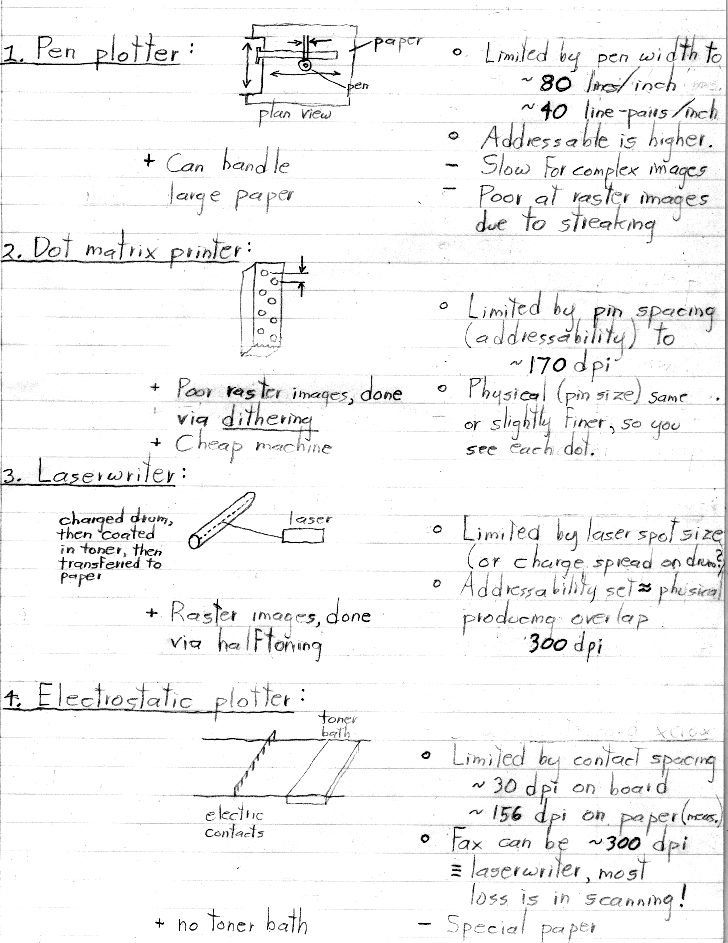 1. Pen plotter:
paper
pen
plan view
o Limited by pen width to
~ 80 lines/inch
~ 40 line-pairs/inch
o Addressable is higher.
- Slow for complex images
- Poor at raster images
due to streaking
+ Can handle
large paper
2. Dot matrix printer:
o Limited by pin spacing
(addressability) to
~170 dpi
+ Poor raster images, done
via dithering
+ Cheap machine
o Physical (pin size) same
or slightly finer, so you
see each dot.
3. Laserwriter:
charged drum,
then coated
in toner, then
transferred to
paper
laser
o Limited by laser spot size
(or charge spread on drum?)
o Addressability set ≈ physical
producing overlap
300 dpi
+ Raster images, done
via halftoning
4. Electrostatic plotter:
toner
bath
electric
contacts
o Limited by contact spacing
~ 30 dpi on board
~ 156 dpi on paper (meas.)
o Fax can be ~300 dpi
≡ laserwriter, most
loss is in scanning!
+ no toner bath
- Special paper